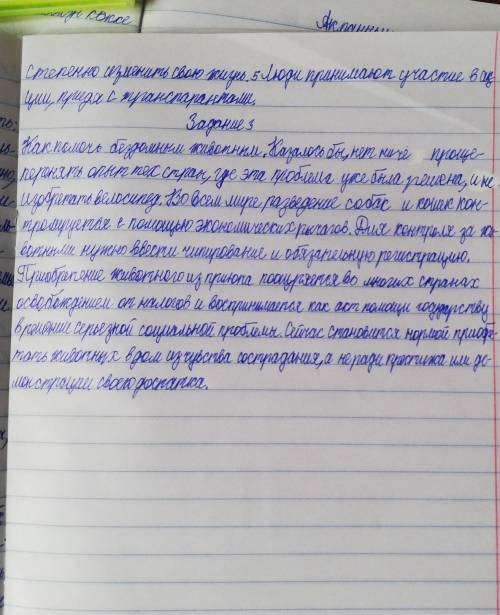 степенно изменить свою жизнь. 5 Люди принимают участие в ак
ции, придя с транспарантами.
Задание 3
Как помочь бездомным животным. Казалось бы, нет ниче проще-
перенять опыт тех стран, где эта проблема уже была решена, и не
изобретать велосипед. Во всем мире разведение собак и кошек кон-
тролируется с помощью экономических рычагов. Для контроля за жи-
вотными нужно ввести чипирование и обязательную регистрацию.
Приобретение животного из приюта поощряется во многих странах
освобождением от налогов и воспринимается как акт помощи государству
в решении серьезной социальной проблемы. Сейчас становится нормой приобре-
тать животных в дом из чувства сострадания, а не ради престижа или де-
монстрации своего достатка.